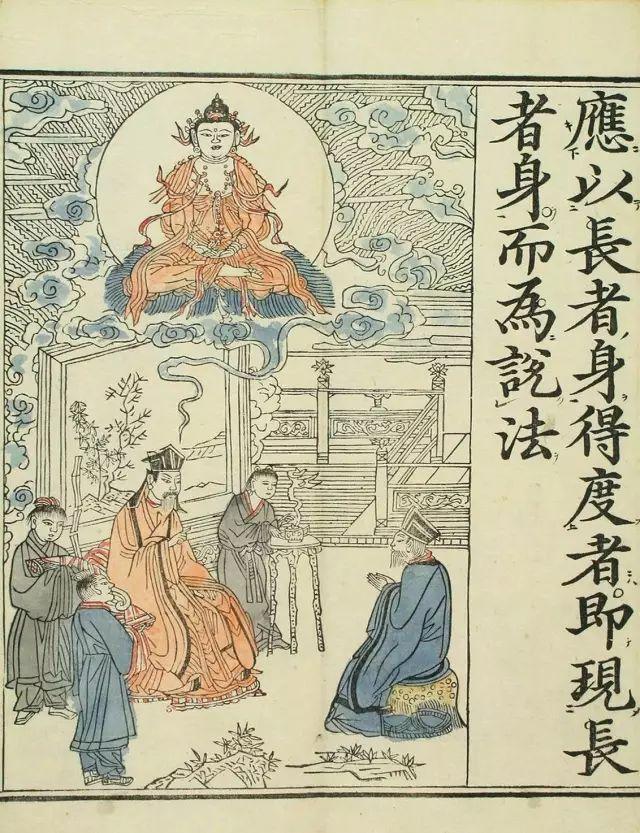 應以長者身得度者即現長
者身而為說法